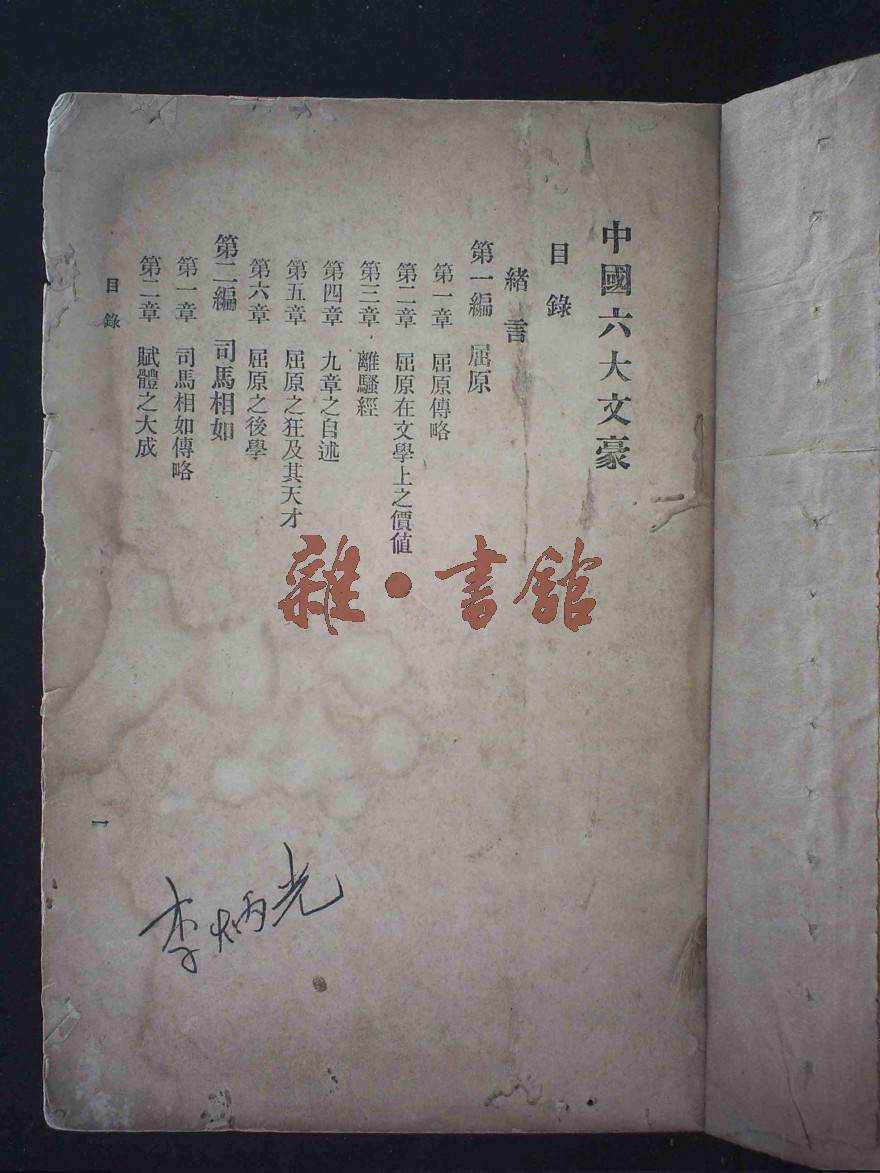 中國六大文豪
目錄
緒言
第一編 屈原
第一章 屈原傳略
第二章 屈原在文學上之價值
第三章 離騷經
第四章 九章之自述
第五章 屈原之狂及其天才
第六章 屈原之後學
第二編 司馬相如
第一章 司馬相如傳略
第二章 賦體之大成
目錄
一
雜·書館
李炳光